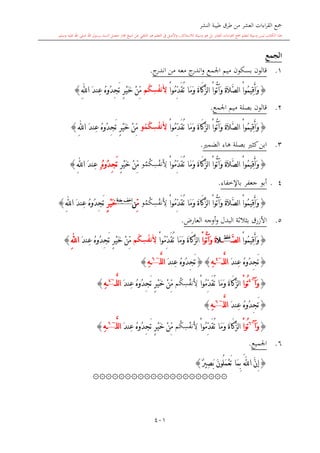 جمع القراءات العشر من طرق طيبة النشر
الجمع
١. قالون بسكون ميم الجمع واندرج معه من اندرج.
﴿ وَأَقِيمُوا۟ ٱلصَّلَوٰةَ وَءَاتُوا۟ ٱلزَّكَوٰةَ وَمَا تُقَدِّمُوا۟ لِأَنفُسِكُم مِّنْ خَيْرٍ تَجِدُوهُ عِندَ ٱللَّهِ ﴾
٢. قالون بصلة ميم الجمع.
﴿ وَأَقِيمُوا۟ ٱلصَّلَوٰةَ وَءَاتُوا۟ ٱلزَّكَوٰةَ وَمَا تُقَدِّمُوا۟ لِأَنفُسِكُمُو مِّنْ خَيْرٍ تَجِدُوهُ عِندَ ٱللَّهِ ﴾
٣. ابن كثير بصلة هاء الضمير.
﴿ وَأَقِيمُوا۟ ٱلصَّلَوٰةَ وَءَاتُوا۟ ٱلزَّكَوٰةَ وَمَا تُقَدِّمُوا۟ لِأَنفُسِكُمُو مِّنْ خَيْرٍ تَجِدُوهُو عِندَ ٱللَّهِ ﴾
٤. أبو جعفر بالإخفاء.
﴿ وَأَقِيمُوا۟ ٱلصَّلَوٰةَ وَءَاتُوا۟ ٱلزَّكَوٰةَ وَمَا تُقَدِّمُوا۟ لِأَنفُسِكُمُو مِّنْ خَيْرٍ تَجِدُوهُ عِندَ ٱللَّهِ ﴾
٥. الأزرق بثلاثة البدل وأوجه العارض.
﴿ وَأَقِيمُوا۟ ٱلصَّلَوٰةَ وَءَاتُوا۟ ٱلزَّكَوٰةَ وَمَا تُقَدِّمُوا۟ لِأَنفُسِكُم مِّنْ خَيْرٍ تَجِدُوهُ عِندَ ٱللَّهِ ﴾
﴿ تَجِدُوهُ عِندَ ٱللَّهِ ﴾ ﴿ تَجِدُوهُ عِندَ ٱللَّهِ ﴾
﴿ وَءَاتُوا۟ ٱلزَّكَوٰةَ وَمَا تُقَدِّمُوا۟ لِأَنفُسِكُم مِّنْ خَيْرٍ تَجِدُوهُ عِندَ ٱللَّهِ ﴾
﴿ تَجِدُوهُ عِندَ ٱللَّهِ ﴾
﴿ وَءَاتُوا۟ ٱلزَّكَوٰةَ وَمَا تُقَدِّمُوا۟ لِأَنفُسِكُم مِّنْ خَيْرٍ تَجِدُوهُ عِندَ ٱللَّهِ ﴾
٦. الجميع.
﴿ إِنَّ ٱللَّهَ بِمَا تَعْمَلُونَ بَصِيرٌ ﴾
٤٠١